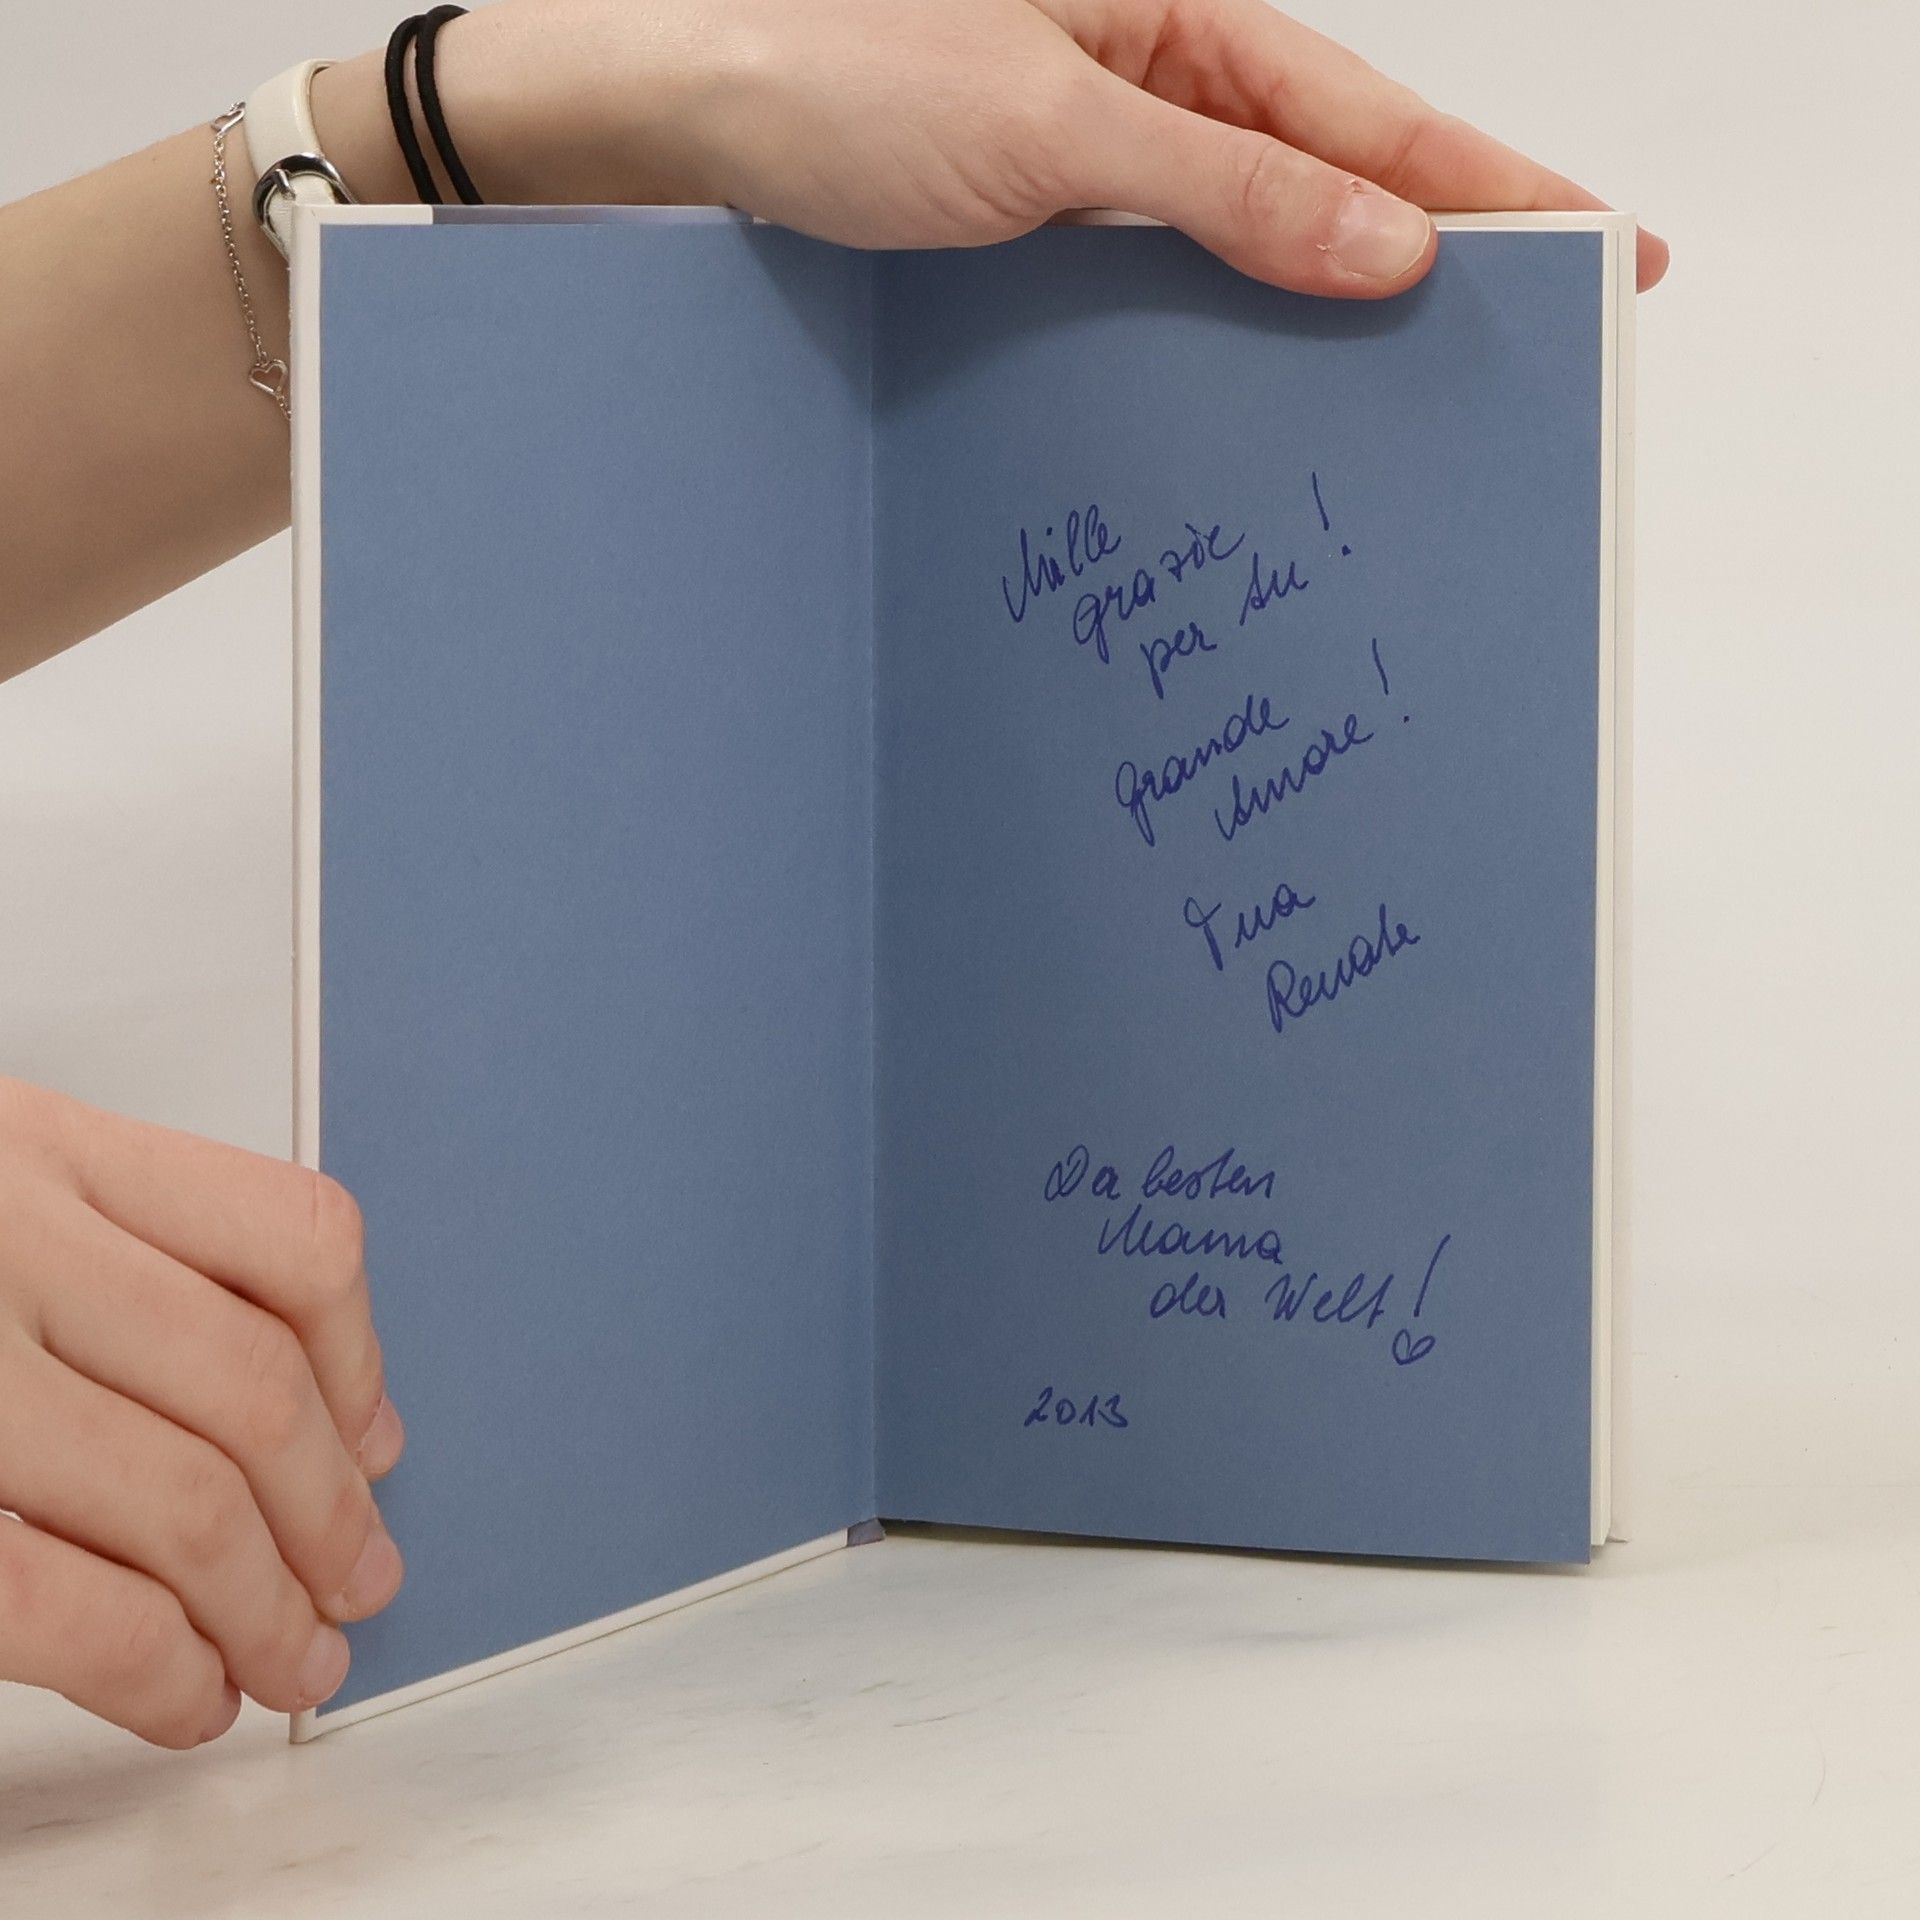 Mille
grazie
per tu!
Grande
Amore!
Tua
Renate
Da besten
Mama
der Welt!
2013